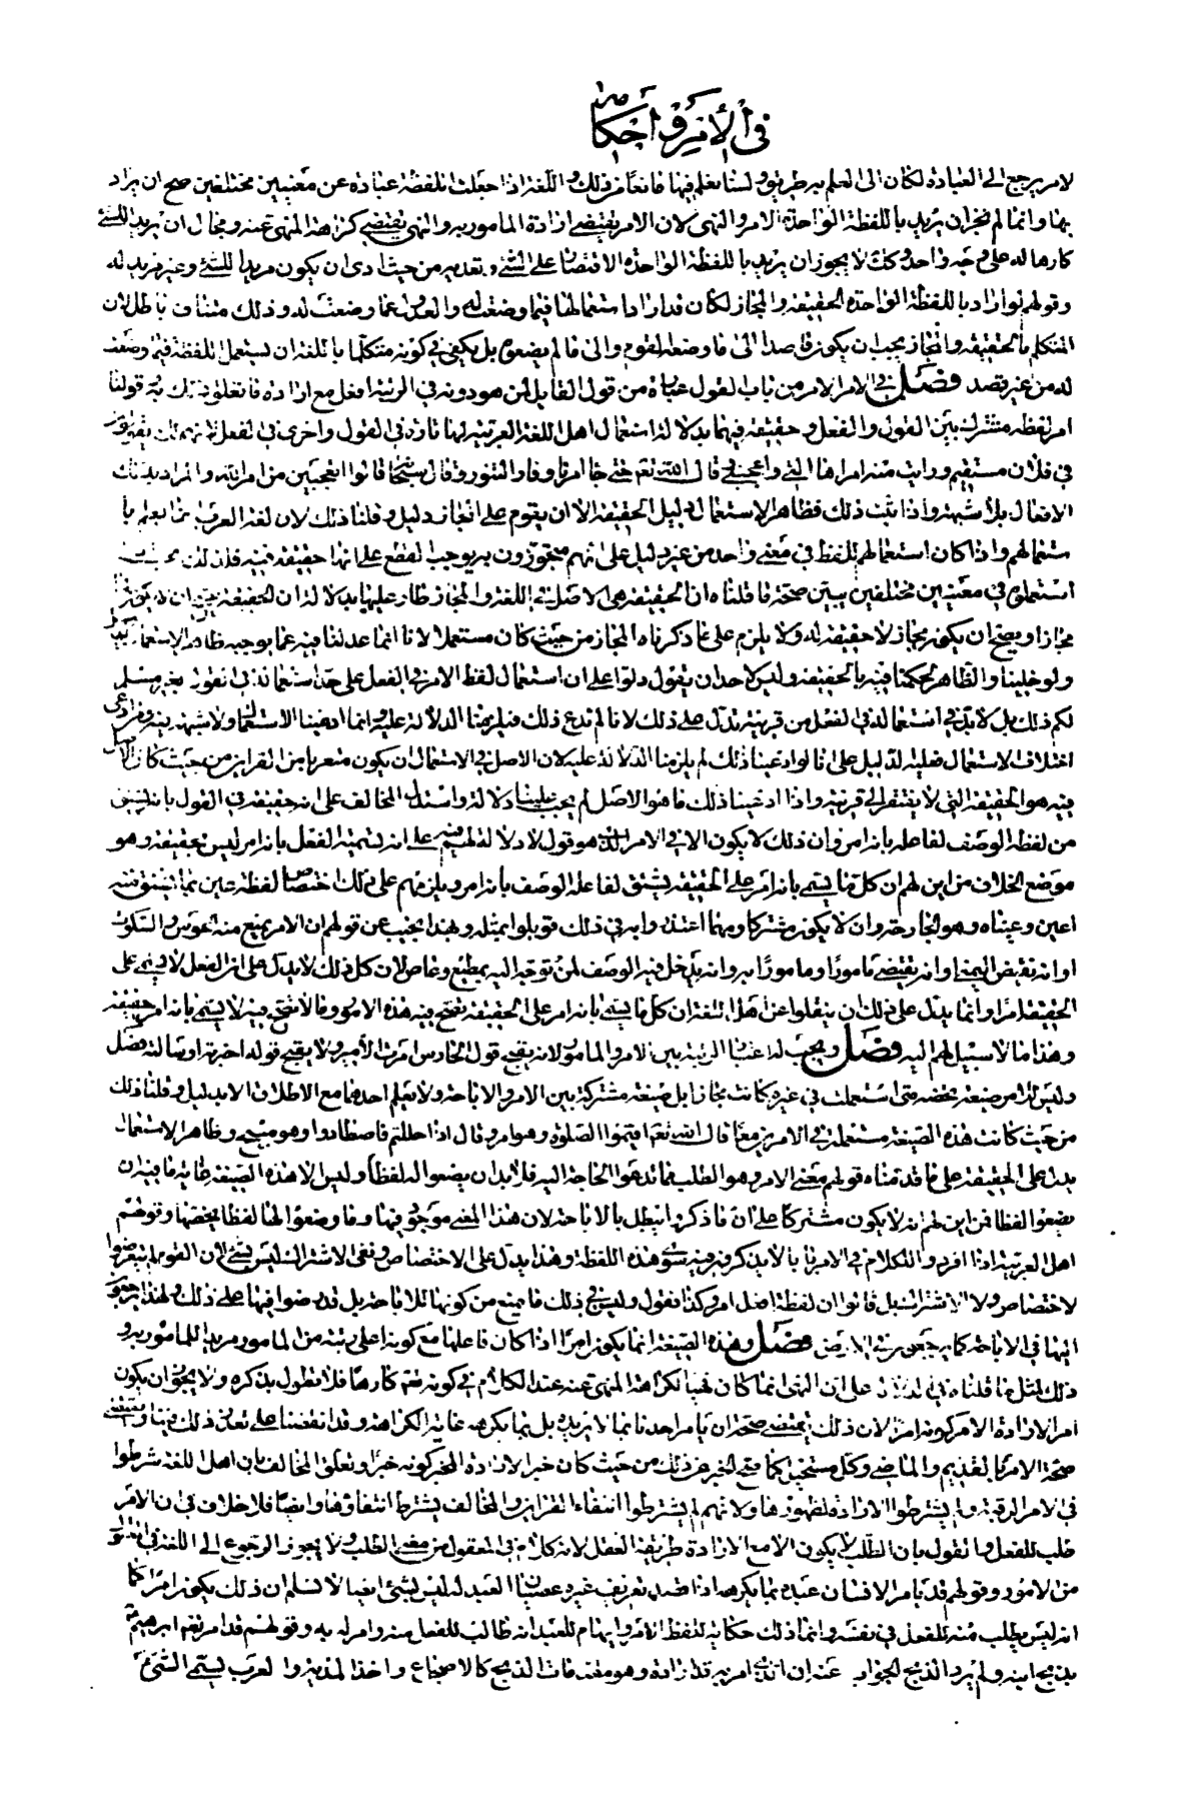 في الأمر وأحكامه
لامر يرجع الى العبادة لكان الى العلم به طريق ولسنا نعلم فيها مانعا من ذلك واللغة اذا جعلت اللفظة عبارة عن معنيين مختلفين صح ان يراد
بها وانما لم يجز ان يريد باللفظة الواحدة الامر والنهى لان الامر يقتضي ارادة المأمور به والنهى يقتضي كراهة المنهى عنه ومحال ان يريد الشئ
كارها له على وجه واحد وكك لا يجوز ان يريد باللفظة الواحدة الاقتصار على الشئ وتعديه من حيث ادى ان يكون مريدا للشئ وغير مريد له
وقولهم لو اراد باللفظة الواحدة الحقيقة والمجاز لكان قد اراد استعمالها فيما وضعت له والعدول عما وضعت له وذلك متناف باطل لان
المتكلم بالحقيقة والمجاز يجب ان يكون قاصدا الى ما وضعه القوم والى ما لم يضعوه بل يكفى في كونه متكلما باللغة ان يستعمل اللفظة فيما وضعت
له من غير قصد فصل في الامر الامر من باب القول عبارة من قول القايل لمن هو دونه في الرتبة افعل مع ارادة ما تعلق به قولنا
امر لفظة مشتركة بين القول والفعل وحقيقة فيهما بدلالة استعمال اهل اللغة العربية لها تارة في القول واخرى في الفعل
في فلان مستقيم ورايت منه امرا هالني واعجبني قال الله تعم حتى جا امرنا وفار التنور وقال سبحانه قالوا اتعجبين من امر الله والمراد بذلك
الافعال بلا شبهة واذا ثبت ذلك فظاهر الاستعمال دليل الحقيقة الا ان يقوم على المجاز دليل وقلنا ذلك لان لغة العرب انما تعلم با
ستعمالهم واذا كان استعمالهم للفظ في معنى واحد من غير دليل على انهم متجوزون به يوجب القطع على انها حقيقة فيه فلذلك
استعملوه في معنيين مختلفين يبين صحة ما قلناه ان الحقيقة هي الاصل في اللغة والمجاز طار عليها بدلالة ان الحقيقة يجوز ان لا يكون لها
مجازا ويصح ان يكون مجاز لا حقيقة له ولا يلزم على ما ذكرناه المجاز من حيث كان مستعملا لانا انما عدلنا فيه عما يوجبه ظاهر الاستعمال
ولو خلينا والظاهر لحكمنا فيه بالحقيقة وليس لاحد ان يقول دلوا على ان استعمال لفظ الامر في الفعل على حد استعماله في القول
لكم ذلك بل لا بد في استعماله في الفعل من قرينة تدل على ذلك لانا لم ندع ذلك فيلزمنا الدلالة عليه وانما ادعينا الاستعمال ولا شبهة فيه ومن ادعى
اختلاف الاستعمال فعليه الدليل على انا لو ادعينا ذلك لم يلزمنا الدلالة عليه لان الاصل في الاستعمال ان يكون متعريا من القراين من حيث كان الاصل
فيه هو الحقيقة التي لا يفتقر الى قرينة واذا ادعينا ذلك ما هو الاصل لم يجب علينا دلالة واستدلال المخالف على انه حقيقة في القول بانه يشتق
من لفظه الوصف لفاعله بانه امر وان ذلك لا يكون الا في الامر الذي هو قول لا دلالة لهم فيه على ان تسمية الفعل بانه امر ليس بحقيقة وهو
موضع الخلاف من اين لهم ان كل ما يسمى بانه امر على الحقيقة يشتق لفاعله الوصف بانه امر ويلزمهم على ذلك اختصاص لفظة عين بما اشتق منه
اعين وعيناه وهو الجارحة وان لا يكون مشتركا ومهما اعتذروا به في ذلك قوبلوا بمثله وبهذا يجيب عن قولهم ان الامر يمنع منه الخرس والسكوت
او انه نقيض النهى او انه يقتضي مامورا ومامورا به وانه يدخل فيه الوصف لمن توجه اليه بمطيع وعاص لان كل ذلك لا يدل على ان الفعل لا يسمى على
الحقيقة امرا وانما يدل على ذلك ان ينقلوا عن اهل اللغة ان كل ما يسمى بانه امر على الحقيقة تصح فيه هذه الامور وما لا تصح فيه لا يسمى بانه امر حقيقة
وهذا ما لا سبيل لهم اليه فصل ويجب له اعتبار الرتبة بين الامر والمامور لانه يقبح قول الحارس امرت الأمير ولا يقبح قوله اخبرته او سالته فصل
وليس للامر صيغة تخصه متى استعملت في غيره كانت مجازا بل صيغة مشتركة بين الامر والاباحة ولا يعلم احدهما مع الاطلاق الا بدليل وقلنا ذلك
من حيث كانت هذه الصيغة مستعملة في الامرين معا قال الله تعم اقيموا الصلوة وهو امر وقال اذا حللتم فاصطادوا وهو مبيح وظاهر الاستعمال
يدل على الحقيقة على ما قدمناه قولهم معنى الامر وهو الطلب مما تدعوا الحاجة اليه فلا بد ان يضعوا له لفظا وليس الا هذه الصيغة غاية ما فيه ان
يضعوا لفظا فمن اين لهم انه لا يكون مشتركا على ان ما ذكروه يبطل بالاباحة لان هذا المعنى موجود فيها وما وضعوا لها لفظا يخصها وقولهم
اهل العربية اذا افردوا الكلام في الامر بابا لا يذكرون فيه سوى هذه اللفظة وهذا يدل على الاختصاص ونفى الاشتراك ليس بشئ لان القوم لم يتعرضوا
لاختصاص ولا لاشتراك بل قالوا ان لفظة افعل امر وكذا نقول وليس في ذلك ما يمنع من كونها للاباحة بل قد نصوا فيها على ذلك ولهذا يرجعون
اليها في الاباحة كما يرجعون في الامر فصل وهذه الصيغة انما يكون امرا اذا كان فاعلها مع كونه اعلى رتبة من المامور مريدا للمامور به و
ذلك لمثل ما قلناه في الدلالة على ان النهى انما كان نهيا لكراهة المنهى عنه عند الكلام في كونه تعم كارها فلا نطول بذكره ولا يجوز ان يكون
امرا لارادة الامر كونه امرا لان ذلك يقتضي صحة ان يامر احدنا بما لا يريده بل بما يكرهه غاية الكراهة وقد اتفقنا على تعذر ذلك
صحة الامر بالقديم والماضي وكل مستحيل كما صح الخبر عن ذلك من حيث كان خبرا لارادة المخبر كونه خبرا وتعلق المخالف بان اهل اللغة شرطوا
في الامر الرتبة ولم يشترطوا الارادة لظهورها ولانهم لم يشترطوا انتفاء القراين والمخالف يشترط انتفاؤها وايضا فلا خلاف في ان الامر
طلب للفعل ولا نقول بان الطلب لا يكون الا مع الارادة طريقة العقل لانه كلام في المعقول من معنى الطلب ولا يجوز الرجوع الى اللغة في
من الامور وقولهم قد يامر الانسان عبده بما يكرهه اذا قصد تعريف غيره عصيان العبد له ليس بشئ ايضا لا نسلم ان ذلك يكون امرا كما
انه ليس يطلب منه الفعل في نفسه وانما ذلك حكاية للفظ الامر وايهام للعبد انه طالب للفعل منه وامر له به وقولهم قد امر تعم ابرهيم
بذبح ابنه ولم يرد الذبح الجواب عنه ان الذي امر به قد اراده وهو مقدمات الذبح كالاضجاع واخذ المدية والعرب تسمى الشئ